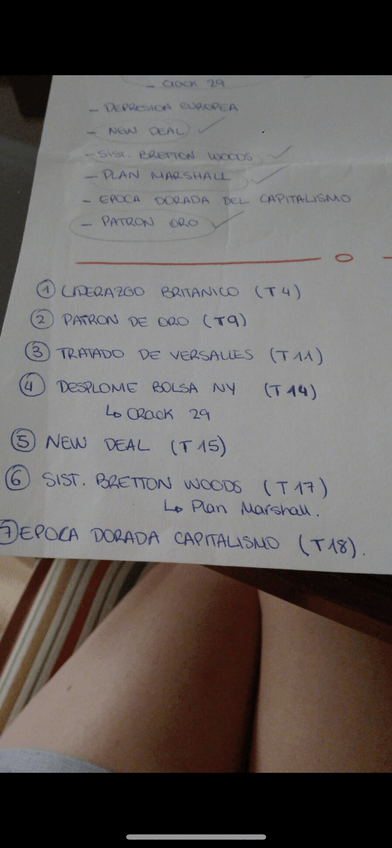 - CRACK 29
- DEPRESION EUROPEA
- NEW DEAL ✓
- SIST. BRETTON WOODS ✓
- PLAN MARSHALL ✓
- EPOCA DORADA DEL CAPITALISMO
- PATRON ORO ✓
① LIDERAZGO BRITANICO (T4)
② PATRON DE ORO (T9)
③ TRATADO DE VERSALLES (T11)
④ DESPLOME BOLSA NY (T14)
↳ CRACK 29
⑤ NEW DEAL (T15)
⑥ SIST. BRETTON WOODS (T17)
↳ Plan Marshall.
⑦ EPOCA DORADA CAPITALISMO (T18).